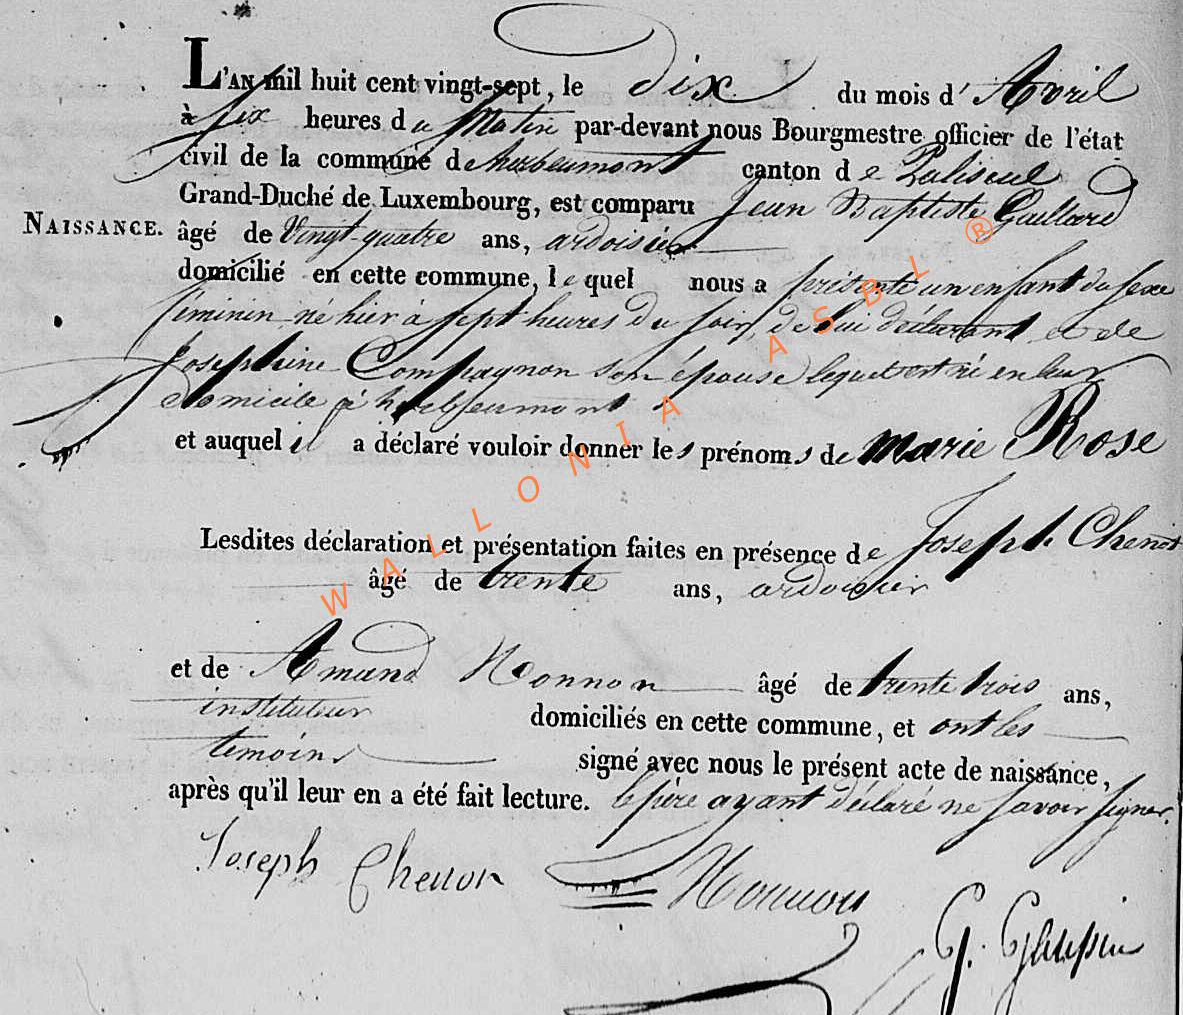 L'AN mil huit cent vingt-sept, le dix du mois d'Avril
à six heures du Matin par-devant nous Bourgmestre officier de l'état
civil de la commune d'herbeumont canton de Paliseul
Grand-Duché de Luxembourg, est comparu Jean Baptiste Gaillard
NAISSANCE. âgé de Vingt-quatre ans, ardoisier
domicilié en cette commune, lequel nous a présenté un enfant du sexe
féminin né hier à sept heures du soir, de lui déclarant et de
Josephine Compagnon son épouse lequel est né en leur
domicile à herbeumont
et auquel il a déclaré vouloir donner les prénoms de marie Rose
Lesdites déclaration et présentation faites en présence de Joseph Chenot
âgé de trente ans, ardoisier
et de Amand Nonnon âgé de trente trois ans,
instituteur domiciliés en cette commune, et ont les
temoins signé avec nous le présent acte de naissance,
après qu'il leur en a été fait lecture. le père ayant déclaré ne savoir signer.
Joseph Chenot Nonnon
G.
WALLONIA ASBL ®